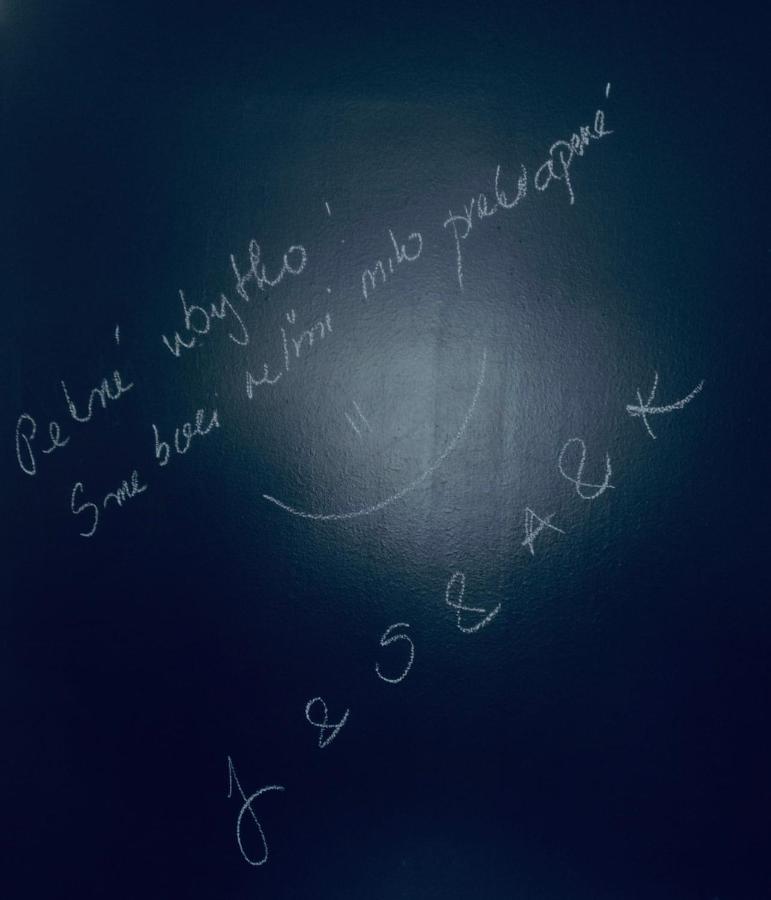 Pekné ubytko!
Sme boli veľmi milo prekvapené
J & S & A & K